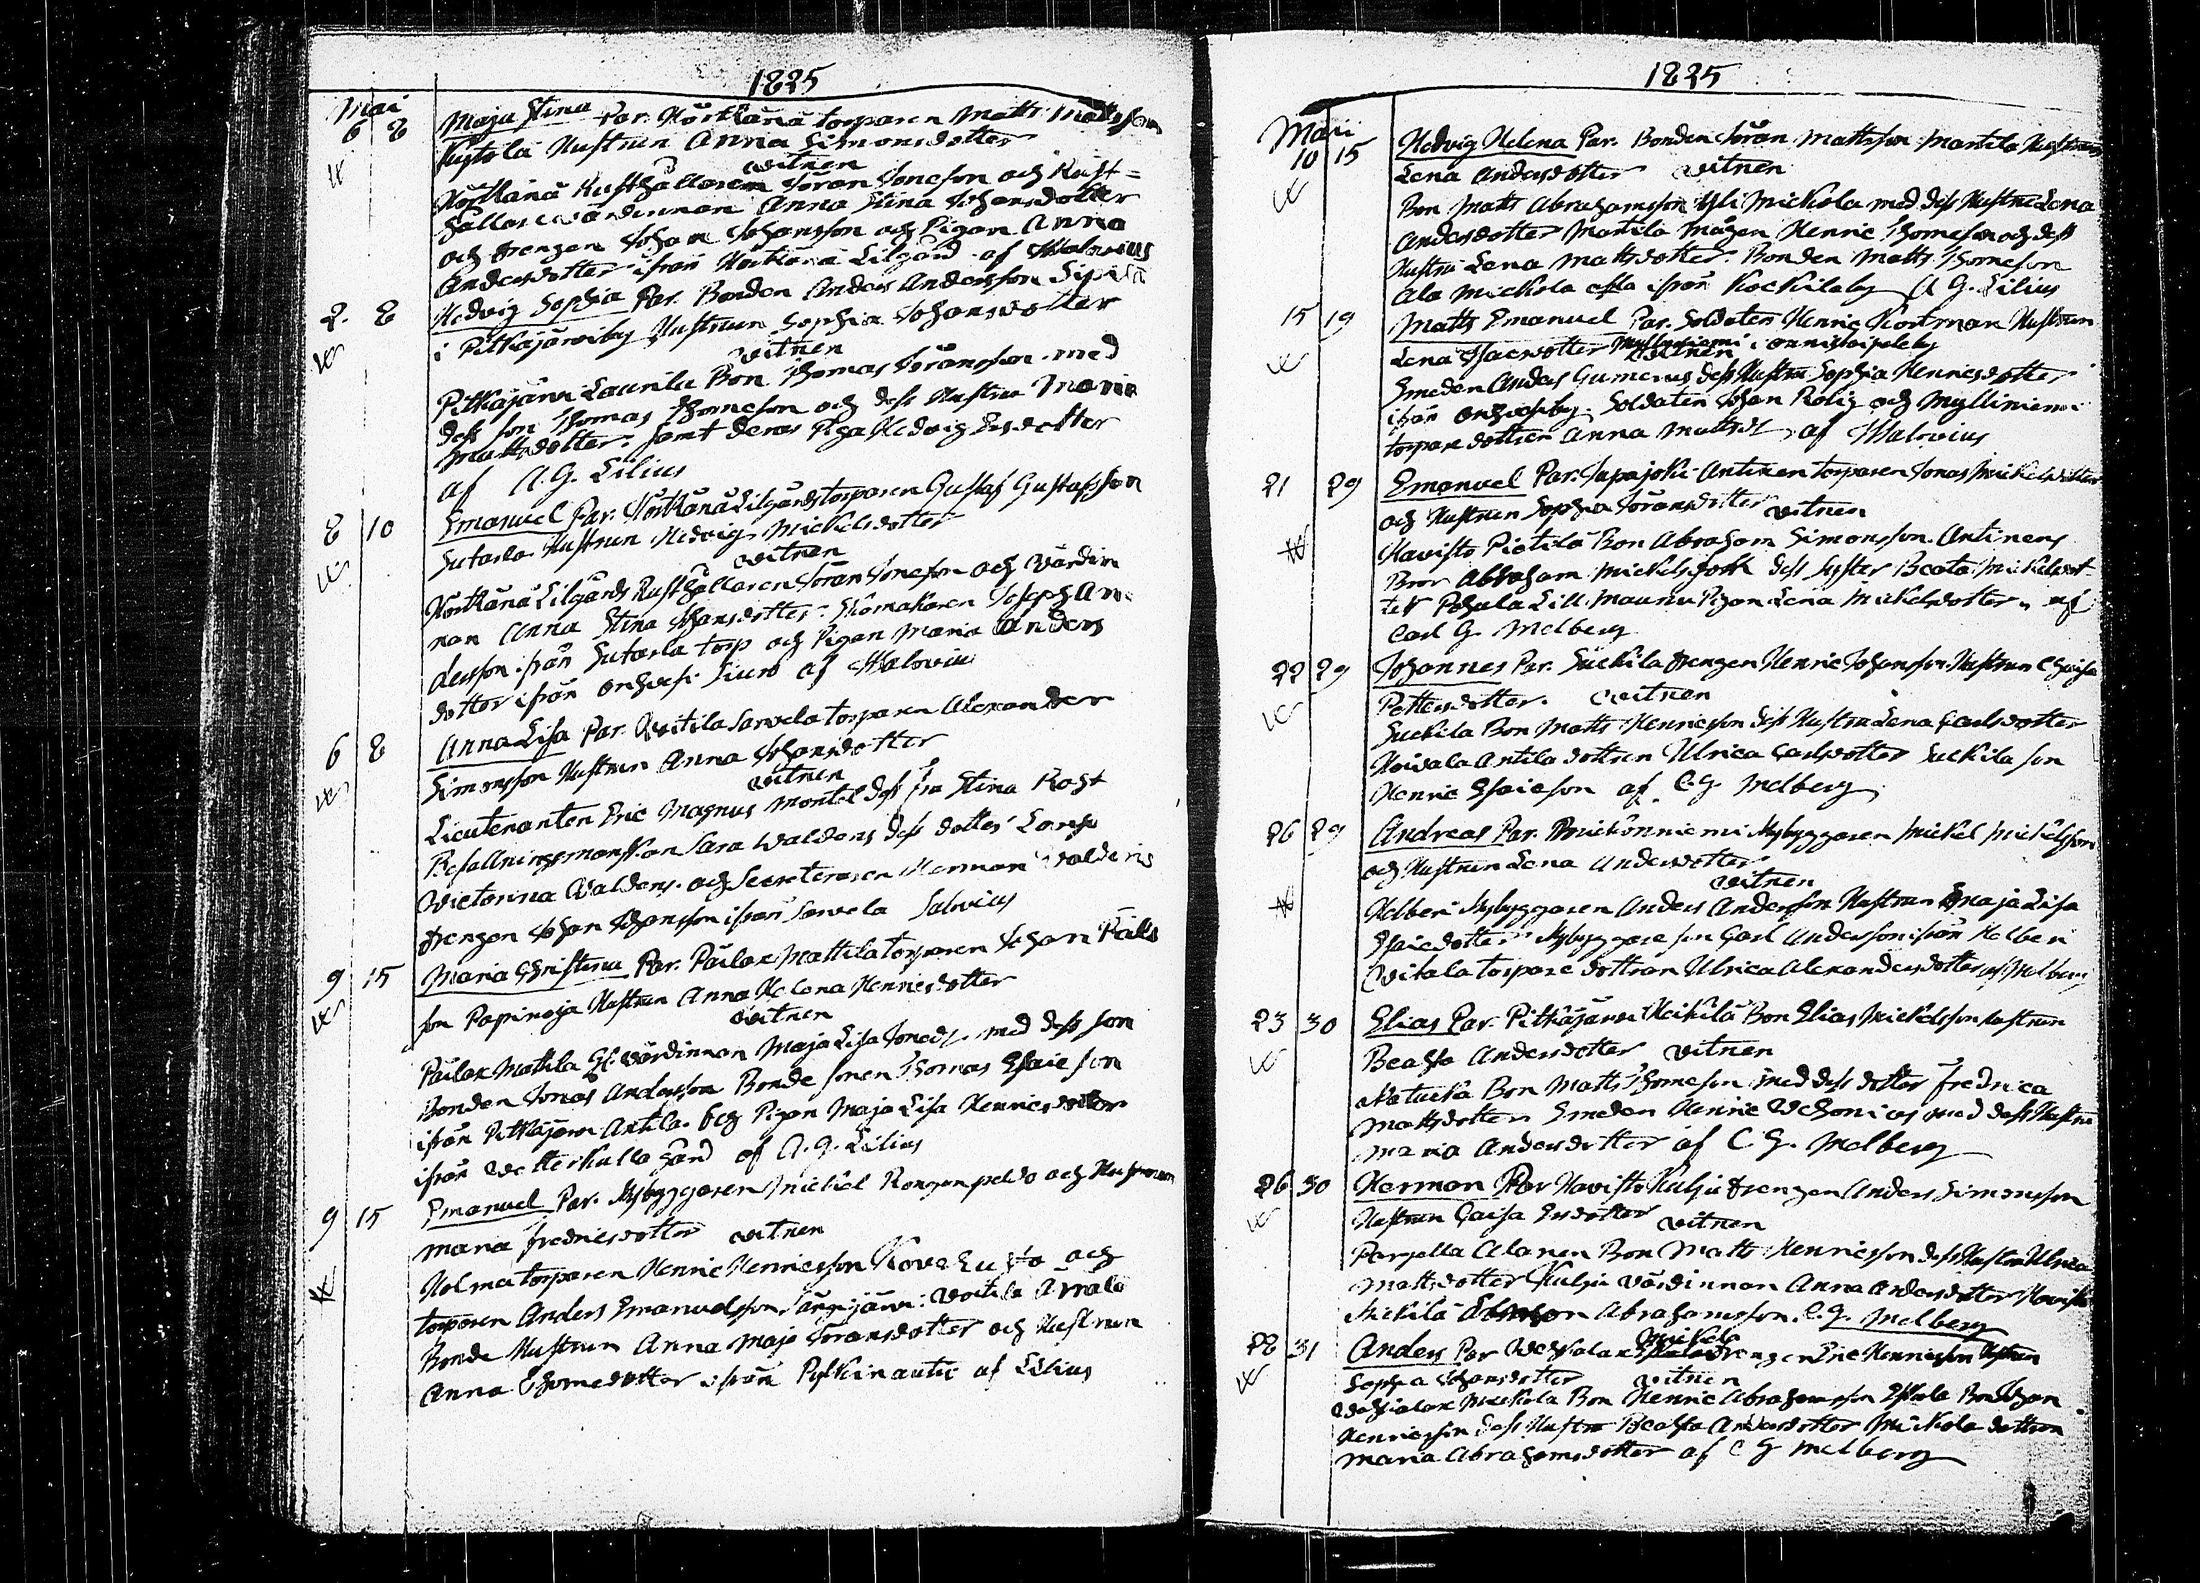 1825
Mai
6 8 Maja Stina Par. Körtkänä torparen Matts Mattsson
Kystolä Hustrun Anna Simonsdotter
vitnen
Körtkänä Rusthållaren Jöran Jonesson och Rust=
hållare värdinnan Anna Stina Johansdotter
och drengen Johan Johansson och Pigan Anna
Andersdotter ifrån Körtkänä Lilgård af Malovius
2. 8 Hedvig Sophia Par. Bonden Anders Andersson Sipilä
i Pitkäjärviby Hustrun Sophia Johansdotter
vitnen
Pitkäjärvi Laurila Bon. Thomas Jöransson med
dess son Thomas Thomesson och dess Hustru Maria
Mattsdotter. samt deras Piga Hedvig Ersdotter
af A. G. Lilius
8 10 Emanuel Par. Körtkänä Lilgårds torparen Gustaf Gustafsson
Sutarla Hustrun Hedvig Mickelsdotter
vitnen
Körtkänä Lilgårds Rusthållaren Jöran Jonesson och värdin
nan Anna Stina Johansdotter. Skomakaren Joseph An
dersson ifrån Sutarla torp och Pigan Maria Anders
dotter ifrån Siuro af Malovius
6 8 Anna Lisa Par. Sarvela torparen Alexander
Simonsson Hustrun Anna Johansdotter
vitnen
Lieutenanten Eric Magnus Montel dess fru Stina Rost
Befallningsmanskan Sara Waldens dess dotter
Victorina Waldens. och Secreteraren Herman Waldens
drengen Johan Johansson ifrån Sarvela Salovius
9 15 Maria Christina Par. Pailax Mattila torparen Johan Påls
son Papinoja Hustrun Anna Helena Henricsdotter
vitnen
Pailax Mattila Gl. värdinnan Maja Lisa Jonedr. med dess son
Bonden Jonas Andersson Bonde sonen Thomas Esaieson
ifrån Pitkäjärvi Antila. och Pigan Maja Lisa Henricsdotter
ifrån Vetterkulla gård af A. G. Lilius
9 15 Emanuel Par. Nybyggaren Mickel Kangenpeldo och Hustrun
Maria Fredricsdotter vitnen
Kolma torparen Henric Henricsson och
torparen Anders Emanuelsson Särkijärvi.
Bonde Hustrun Anna Maja Jöransdotter och Hustrun
Anna Thomedotter ifrån af Lilius
1825
Mai
10 15 Hedvig Helena Par. Bonden Jöran Mattsson Mantila Hustrun
Lena Andersdotter vitnen
Bon Matts Abrahamsson Yli Mickola med dess Hustru Lena
Andersdotter Mantila mågen Henric Thomesson och dess
Hustru Lena Mattsdotter. Bonden Matts Thomeson
Ala Mickola alla ifrån Kockilaby A G. Lilius
15 19 Matts Emanuel Par. Soldaten Henric Kortman Hustrun
Lena Isacsdotter Myllyniemi i
vitnen
Smeden Anders Gumerus dess Hustru Sophia Henricsdotter
ifrån Soldaten Johan Rolig och Mylliniemi
torpare dottren Anna Mattsdr af Malovius
21 29 Emanuel Par. Sapajoki Antinen torparen Jonas Mickelsson
och Hustrun Sophia Jöransdotter vitnen
Havisto Pietilä Bon Abraham Simonsson. Antinens
Bror Abraham Mickelsson dess syster Beata Mickelsdot
ter Pohjala Lill. Maunu Pigan Lena Mickelsdotter, af
Carl G. Melberg
22 29 Johannes Par. Suckila drengen Henric Johansson Hustrun Chaisa
Pettersdotter. vitnen
Suckila Bon Matts Henricsson dess Hustru Lena Carlsdotter
Antila dottren Ulrica Carlsdotter Suckila son
Henric Esaieson af C. G. Melberg
26 29 Andreas Par. Nybyggaren Mickel Mickelsson
och Hustrun Lena Andersdotter
vitnen
Nybyggaren Anders Andersson Hustrun Maja Lisa
Esaiedotter. Nybyggare son Carl Andersson ifrån
torpare dottran Ulrica Alexandersdotter af Melberg
23 30 Elias Par. Pitkäjärvi Heikilä Bon Elias Mickelsson Hustrun
Beatha Andersdotter vitnen
Bon Matts Thomeson med dess dotter Fredrica
Mattsdotter Smeden Henric med dess Hustru
Maria Andersdotter af C. G. Melberg
26 30 Herman Par Havisto Kulju drengen Anders Simonsson
Hustrun Caisa Ersdotter vitnen
Alanen Bon Matts Henricsson dess Hustru Ulrica
Mattsdotter Kulju värdinnan Anna Andersdotter Havisto
Abrahamsson. C. G. Melberg
28 31 Anders Par Mickola drengen Eric Henricsson Hustrun
Sophia Johansdotter vitnen
Mickola Bon Henric Abrahamsson Eskola Bon Johan
Henricsson dess Hustru Beatha Andersdotter Mickola dottren
Maria Abrahamsdotter af C G Melberg